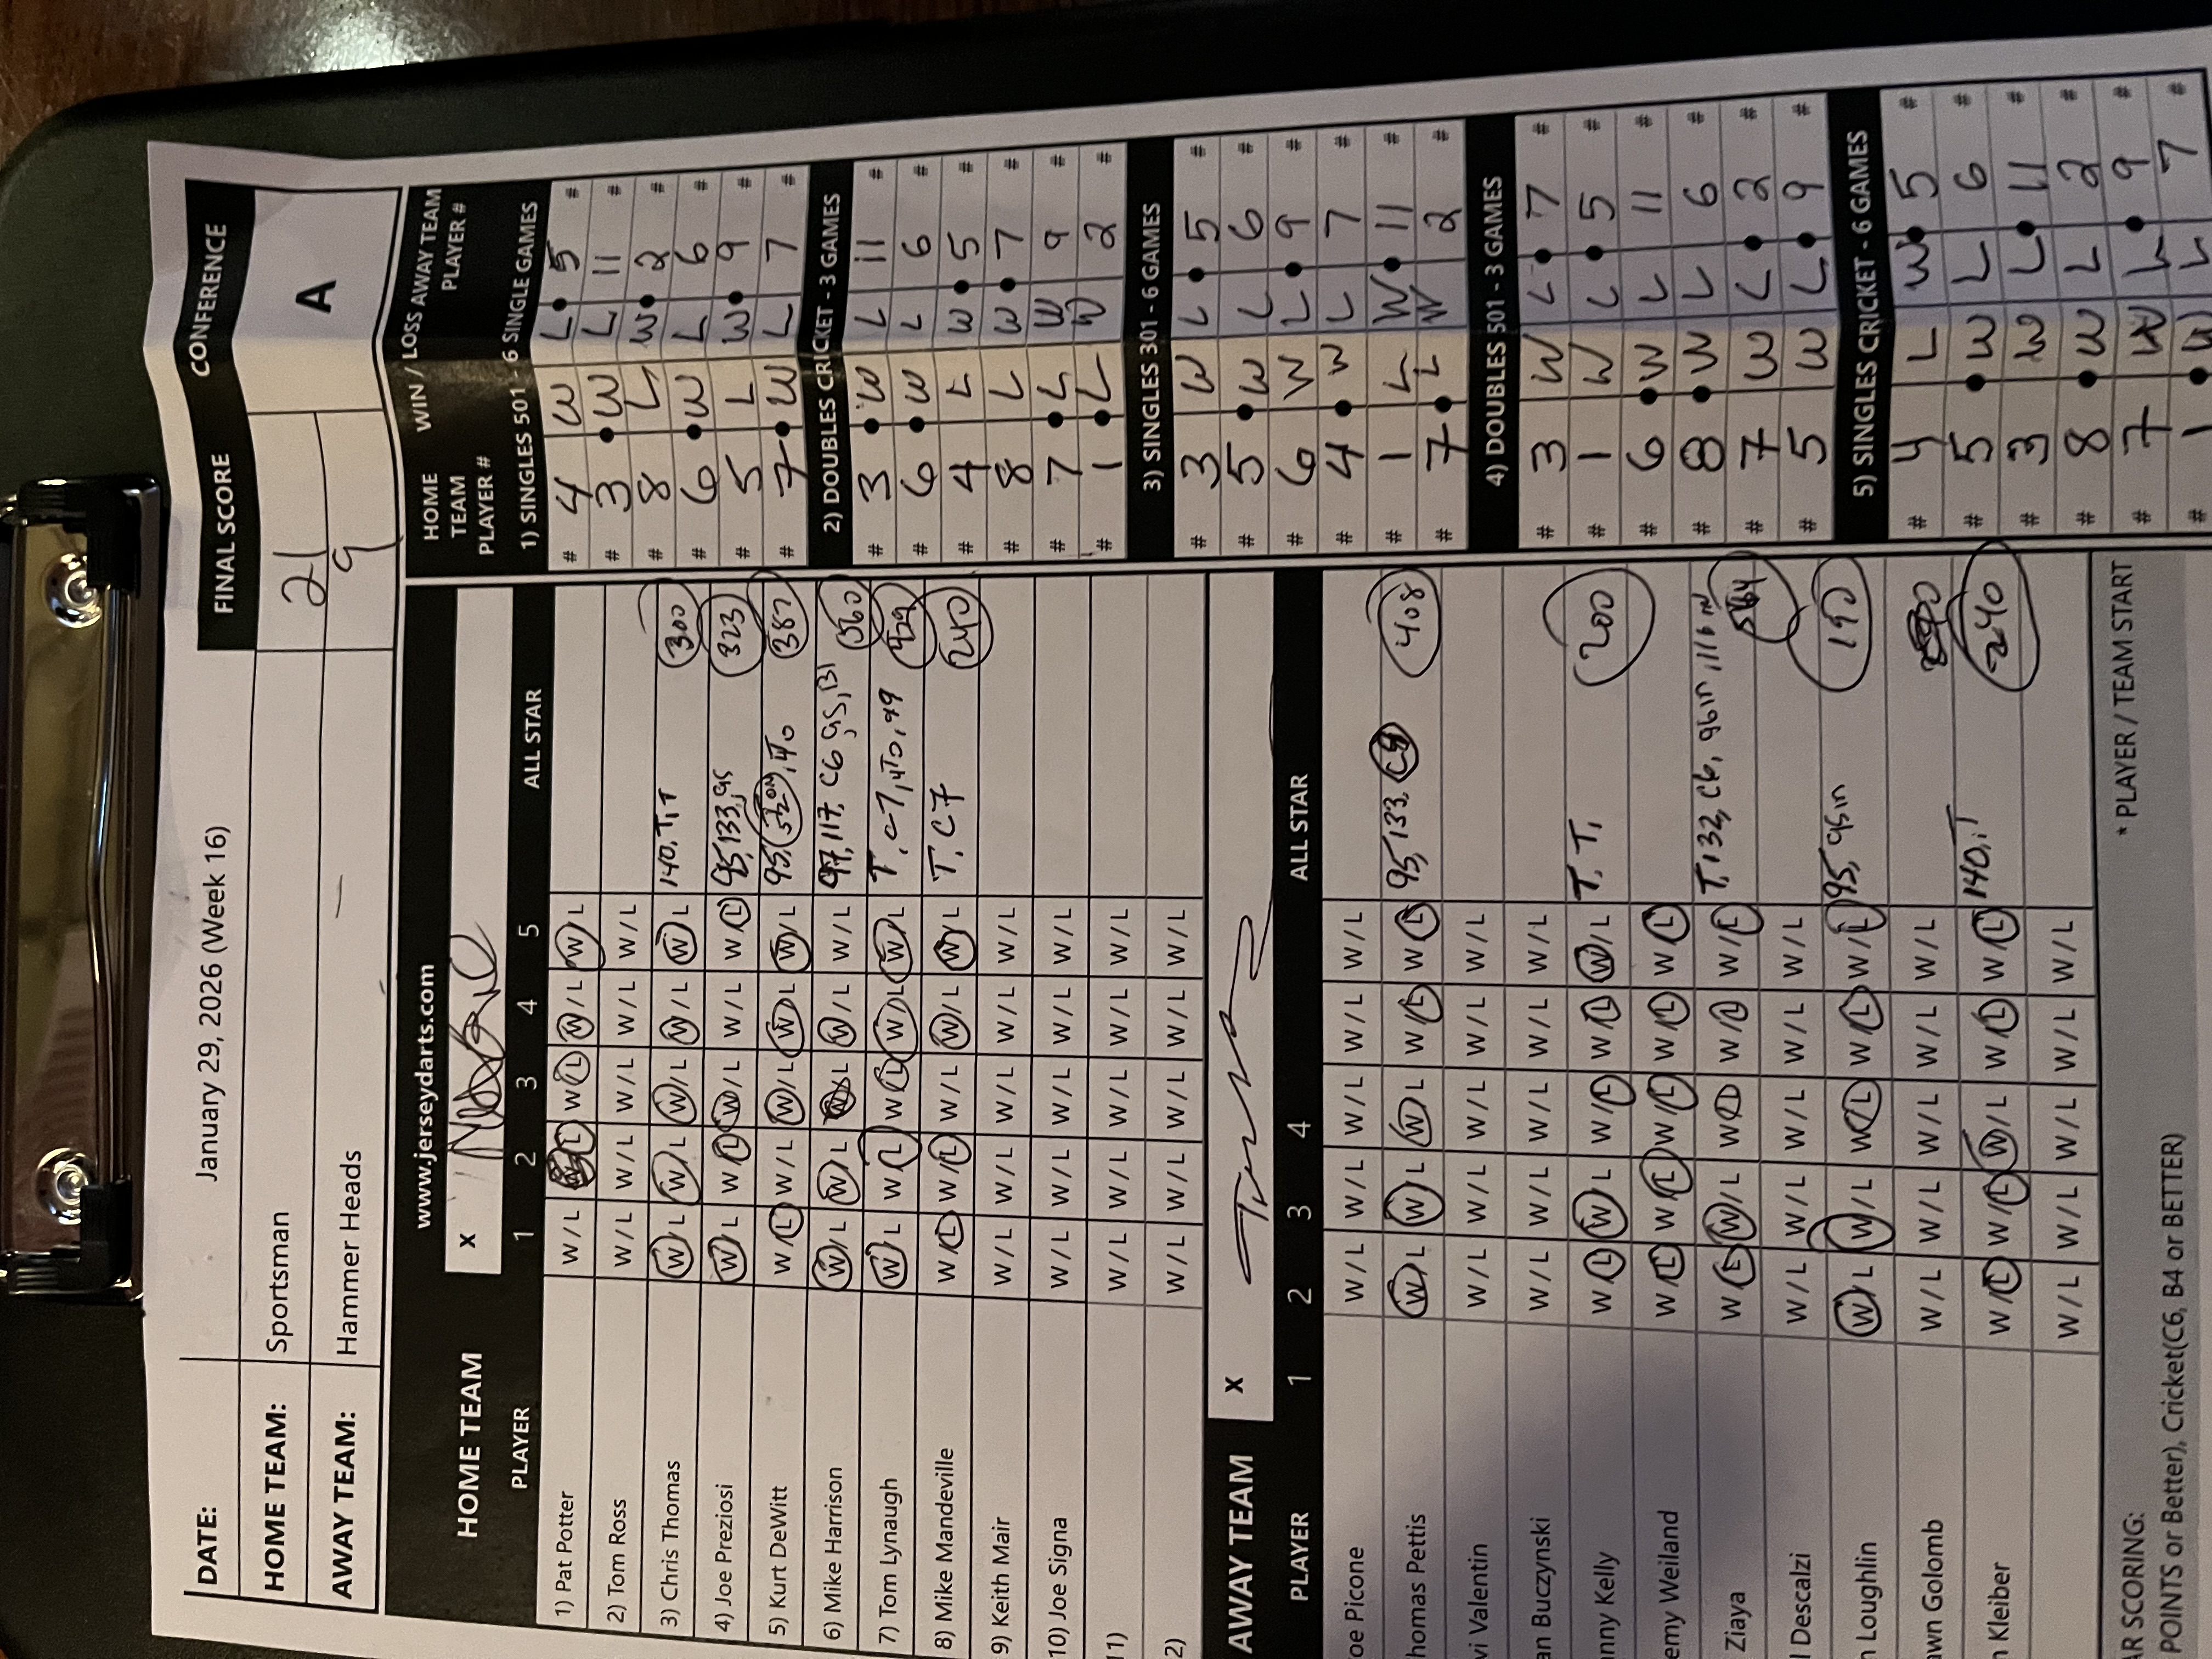 DATE: January 29, 2026 (Week 16) FINAL SCORE CONFERENCE
HOME TEAM: Sportsman 21 A
AWAY TEAM: Hammer Heads 9
www.jerseydarts.com
HOME TEAM X
PLAYER 1 2 3 4 5 ALL STAR
1) Pat Potter W / L W / L W / L W / L W / L
2) Tom Ross W / L W / L W / L W / L W / L
3) Chris Thomas W / L W / L W / L W / L W / L 140, T, T 300
4) Joe Preziosi W / L W / L W / L W / L W / L 95, 133, 95 323
5) Kurt DeWitt W / L W / L W / L W / L W / L 95, 140 387
6) Mike Harrison W / L W / L W / L W / L W / L 97, 117, C6 95, 131 560
7) Tom Lynaugh W / L W / L W / L W / L W / L T, C7, 140, 99 429
8) Mike Mandeville W / L W / L W / L W / L W / L T, C7 240
9) Keith Mair W / L W / L W / L W / L W / L
10) Joe Signa W / L W / L W / L W / L W / L
1) W / L W / L W / L W / L W / L
2) W / L W / L W / L W / L W / L
AWAY TEAM X
PLAYER 1 2 3 4 ALL STAR
oe Picone W / L W / L W / L W / L W / L
homas Pettis W / L W / L W / L W / L W / L 95, 133, 408
vi Valentin W / L W / L W / L W / L W / L
an Buczynski W / L W / L W / L W / L W / L
anny Kelly W / L W / L W / L W / L W / L T, T, 200
emy Weiland W / L W / L W / L W / L W / L
Ziaya W / L W / L W / L W / L W / L T, 132, C6, 96in, 116 in
l Descalzi W / L W / L W / L W / L W / L
n Loughlin W / L W / L W / L W / L W / L 95, 95in 190
awn Golomb W / L W / L W / L W / L W / L
n Kleiber W / L W / L W / L W / L W / L 140, T 240
W / L W / L W / L W / L W / L
* PLAYER / TEAM START
AR SCORING:
POINTS or Better), Cricket(C6, B4 or BETTER)
HOME TEAM PLAYER # WIN / LOSS AWAY TEAM PLAYER #
1) SINGLES 501 - 6 SINGLE GAMES
# 4 W L 5 #
# 3 W L 11 #
# 8 L W 2 #
# 6 W L 6 #
# 5 L W 9 #
# 7 W L 7 #
2) DOUBLES CRICKET - 3 GAMES
# 3 W L 11 #
# 6 W L 6 #
# 4 L W 5 #
# 8 L W 7 #
# 7 L W 9 #
# 1 L W 2 #
3) SINGLES 301 - 6 GAMES
# 3 W L 5 #
# 5 W L 6 #
# 6 W L 9 #
# 4 W L 7 #
# 1 L W 11 #
# 7 L W 2 #
4) DOUBLES 501 - 3 GAMES
# 3 W L 7 #
# 1 W L 5 #
# 6 W L 11 #
# 8 W L 6 #
# 7 W L 2 #
# 5 W L 9 #
5) SINGLES CRICKET - 6 GAMES
# 4 L W 5 #
# 5 W L 6 #
# 3 W L 11 #
# 8 W L 2 #
# 7 W L 9 #
# 1 W L 7 #